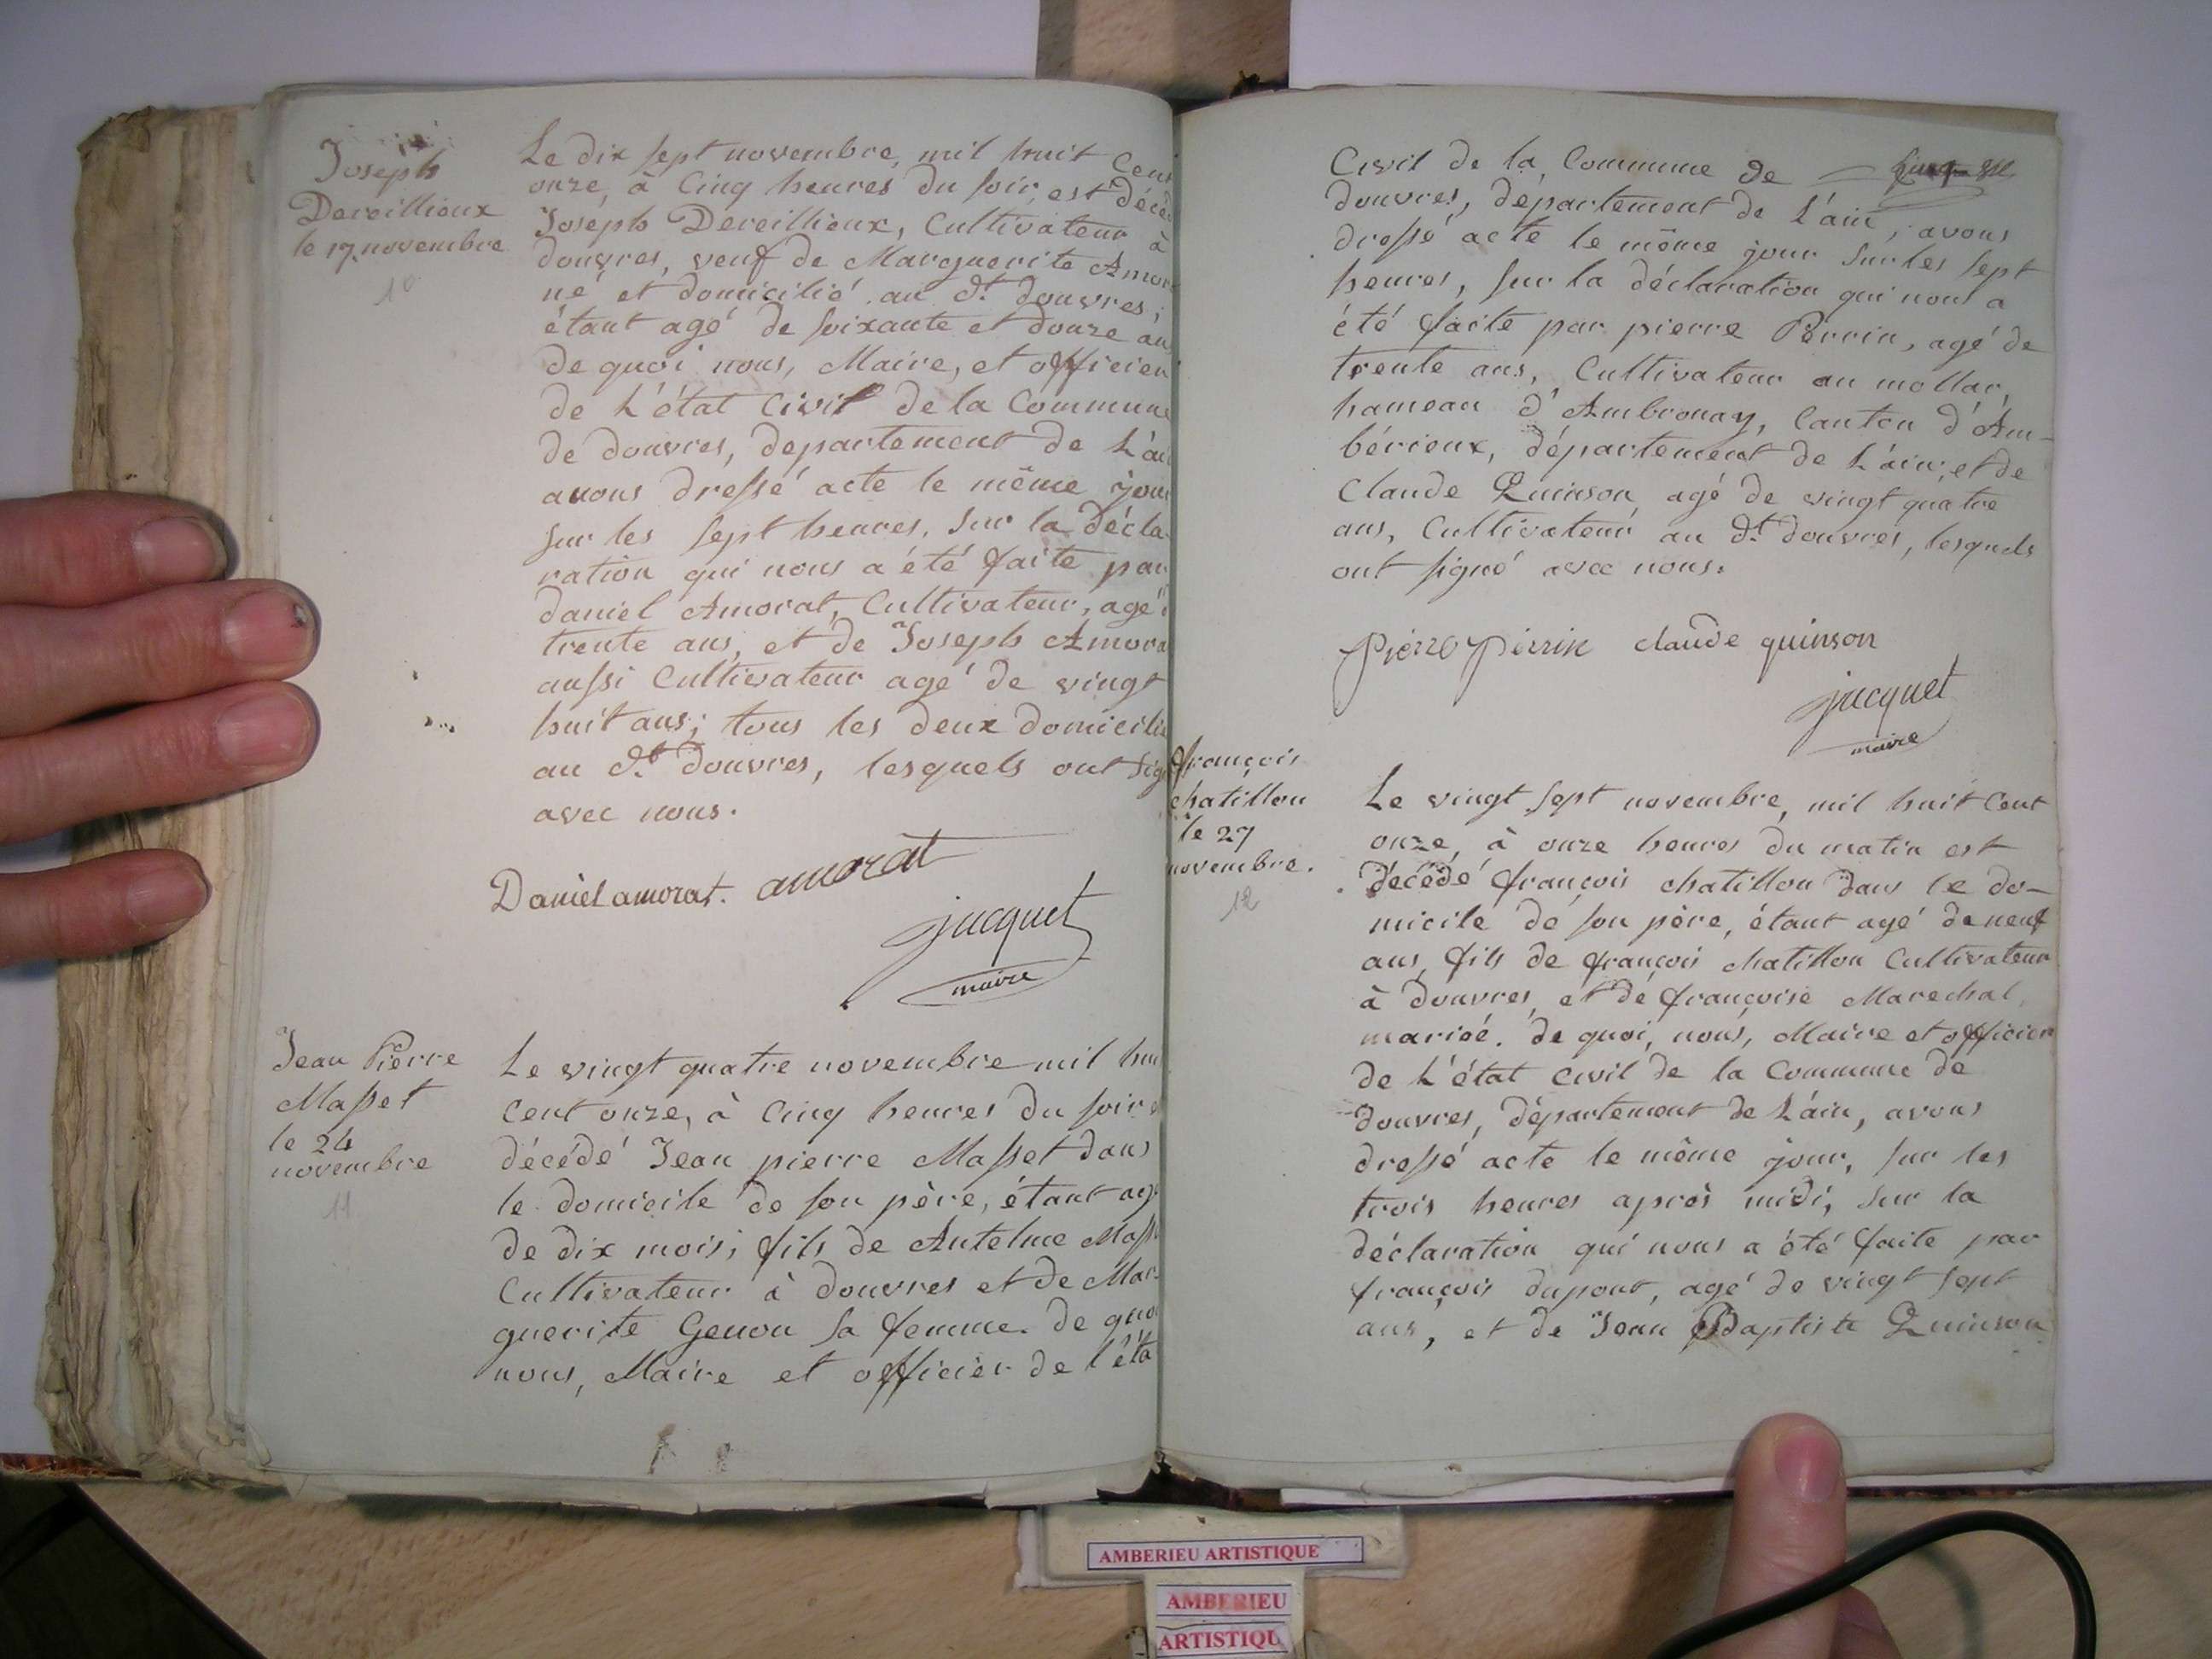 Joseph
Dereillieux
le 17 novembre
10
Le dix sept novembre, mil huit cent
onze, à Cinq heures du soir, est décéd
Joseph Dereillieux, Cultivateur à
douvres, veuf de Marguerite Amor
né et domicilié au dt. douvres;
étant agé de soixante et douze an
de quoi nous, Maire, et officier
de L'état Civil de la Commune
de douvres, departement de L'ain
avons dressé acte le même jour
sur les sept heures, sur la décla-
ration qui nous a été faite par
daniel Amorat, Cultivateur, agé
trente ans, et de Joseph Amora
aussi Cultivateur agé de vingt
huit ans; tous les deux domicilié
au dt. douvres, lesquels ont sig
avec nous.
Daniel amorat. amorat
jacquet
maire
Jean Pierre
Masset
le 24
novembre
11
Le vingt quatre novembre mil hui
cent onze, à Cinq heures du soir e
décédé Jean pierre Masset dans
le domicile de son père, étant agé
de dix mois; fils de Antelme Mass
Cultivateur à douvres et de Mar-
guerite Genou sa femme. De quoi
nous, Maire et officier de l'éta
Civil de la Commune de
douvres, département de L'ain, avons
dressé acte le même jour sur les sept
heures, sur la déclaration qui nous a
été faite par pierre Perrin, agé de
trente ans, Cultivateur au mollar,
hameau d'Ambronay, Canton d'Am-
bérieux, département de L'ain, et de
Claude Quinson agé de vingt quatre
ans, Cultivateur au dt. douvres, lesquels
ont signé avec nous.
pierre perrin claude quinson
jacquet
maire
françois
chatillon
le 27
novembre.
12
Le vingt sept novembre, mil huit Cent
onze, à onze heures du matin est
décédé françois chatillon dans le do-
micile de son père, étant agé de neuf
ans, fils de françois chatillon Cultivateur
à douvres, et de françoise Marechal,
mariée. de quoi, nous, Maire et officier
de L'état civil de la Commune de
douvres, département de L'ain, avons
dressé acte le même jour, sur les
trois heures après midi, sur la
déclaration qui nous a été faite par
françois dupont, agé de vingt sept
ans, et de Jean Baptiste Quinson
AMBERIEU ARTISTIQUE
AMBERIEU
ARTISTIQU